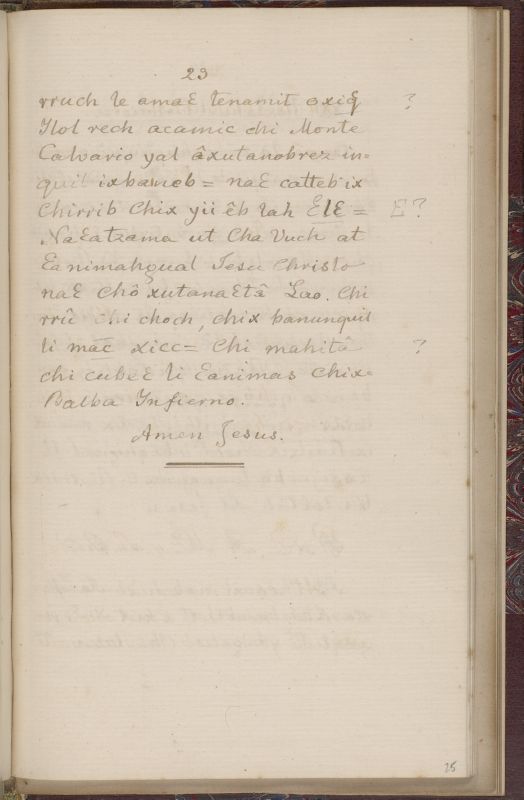 23
rruch le amaƐ tenamit oxiq̱ ?
Ylol rech acamic chi Monte
Calvario yal âxutanobrez in=
quil ixbameb = naƐ catteb ix
Chirrib Chix yii êb lah ƐlƐ = Ɛ?
NaƐatzama ut Cha Vuch at
Ɛanimahgual Jesu Christo
naƐ Chô xutanaƐtâ Lao. Chi
rrû chi choch, chix banunquil
li mac̅ xicc= Chi mahitâ ?
chi cubeƐ li Ɛanimas Chix=
Balba Infierno.
Amen Jesus.
25